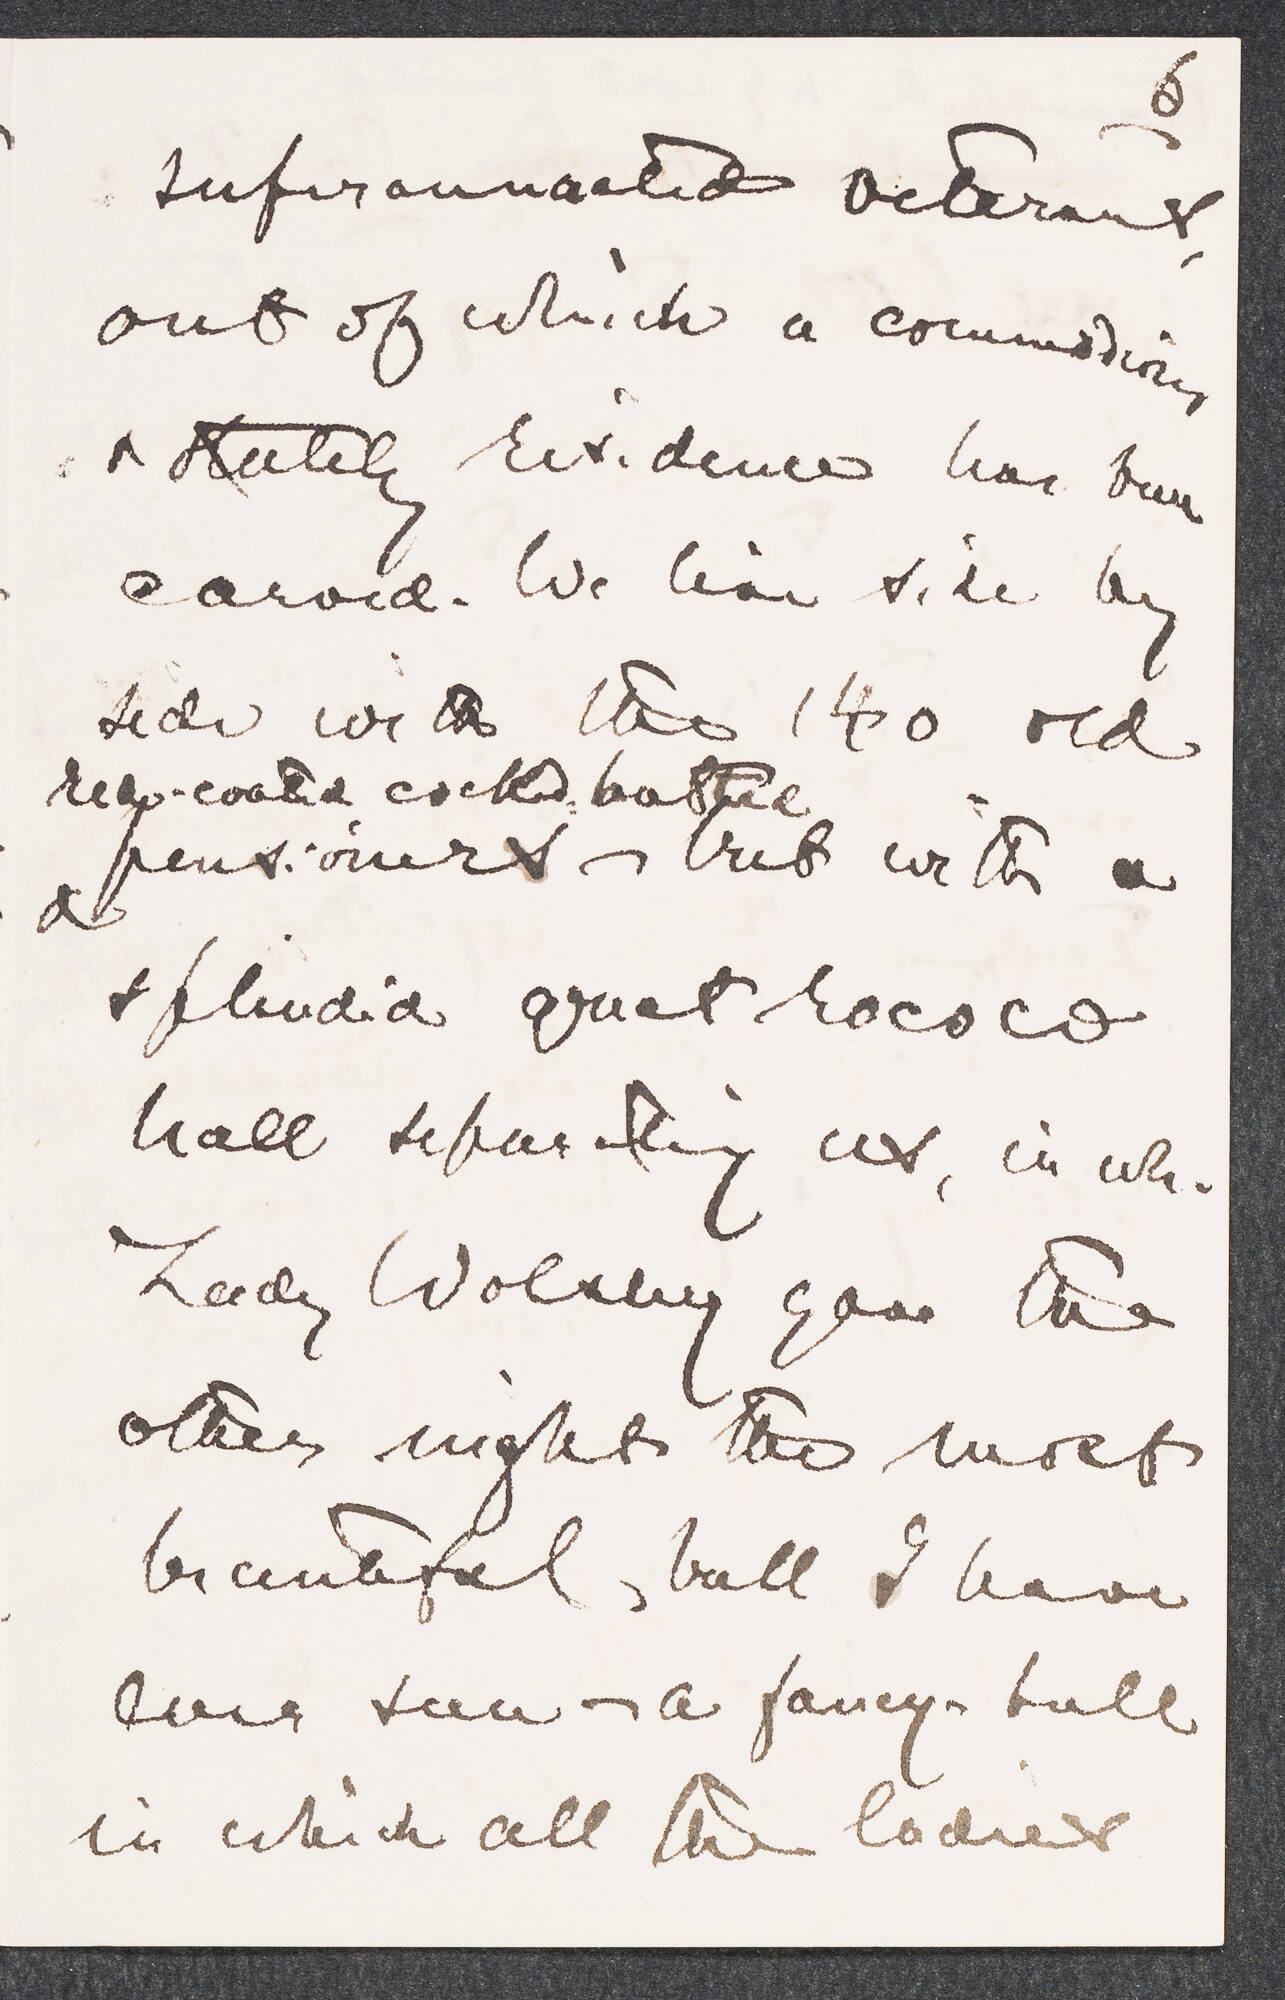 6
superannuated veterans,
out of which a commodious
& stately residence has been
carved. We live side by
side with the 140 old
red-coated, cocked-hatted
pensioners — but with a
splendid great rococo
hall separating us, in wh.
Lady Wolseley gave the
other night the most
beautiful, ball I have
ever seen — a fancy-ball
in which all the ladies